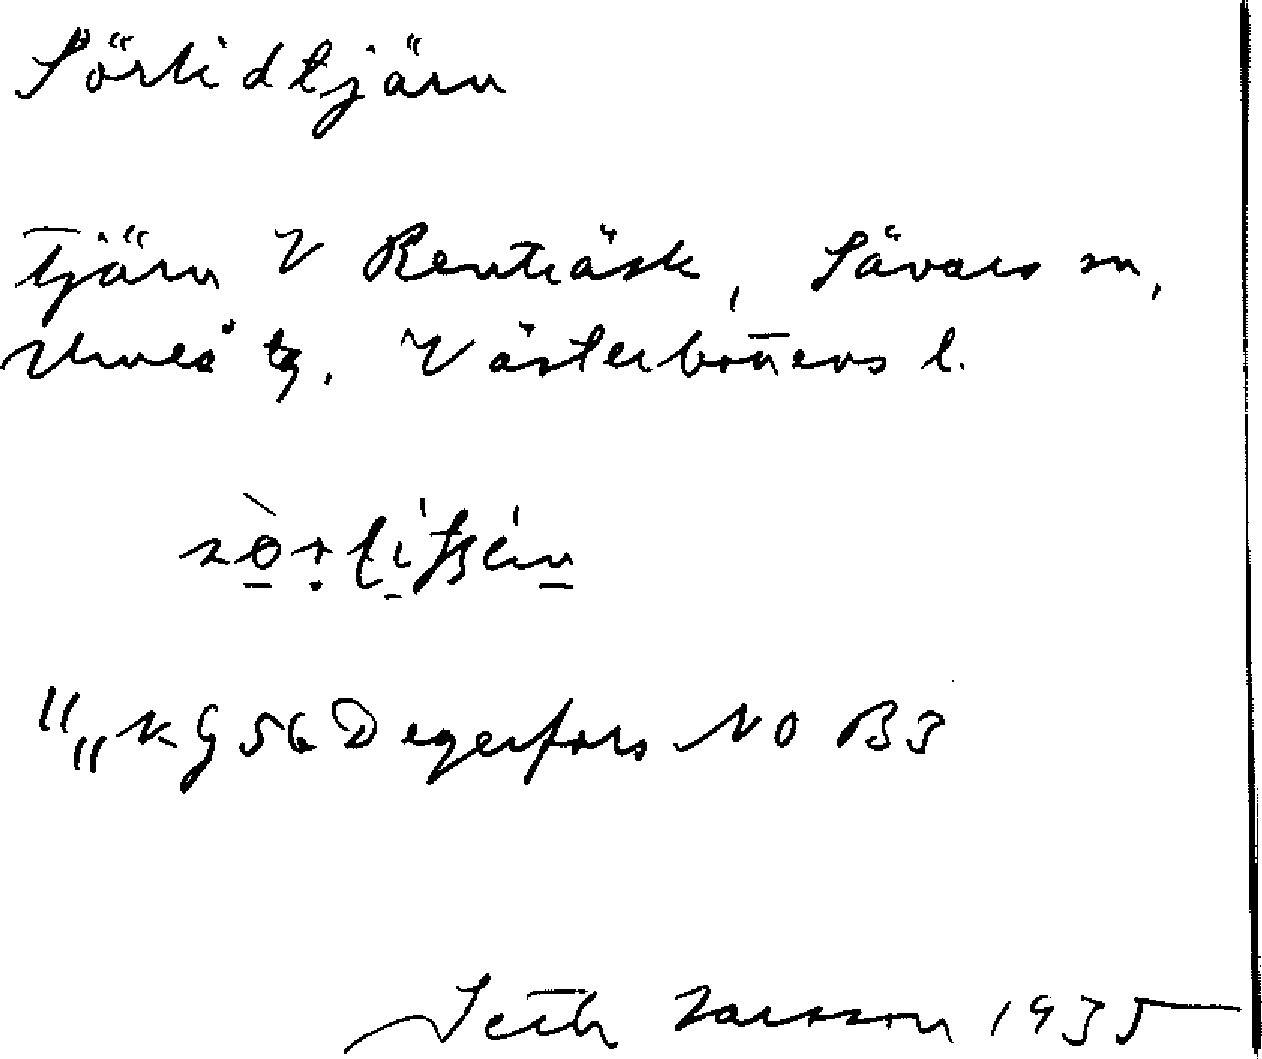 Sörlidtjärn
Tjärn V Renträsk, Sävars sn,
Umeå tg, Västerbottens l.
"„ K G 56 Degerfors NO B3
Seth Larsson 1935